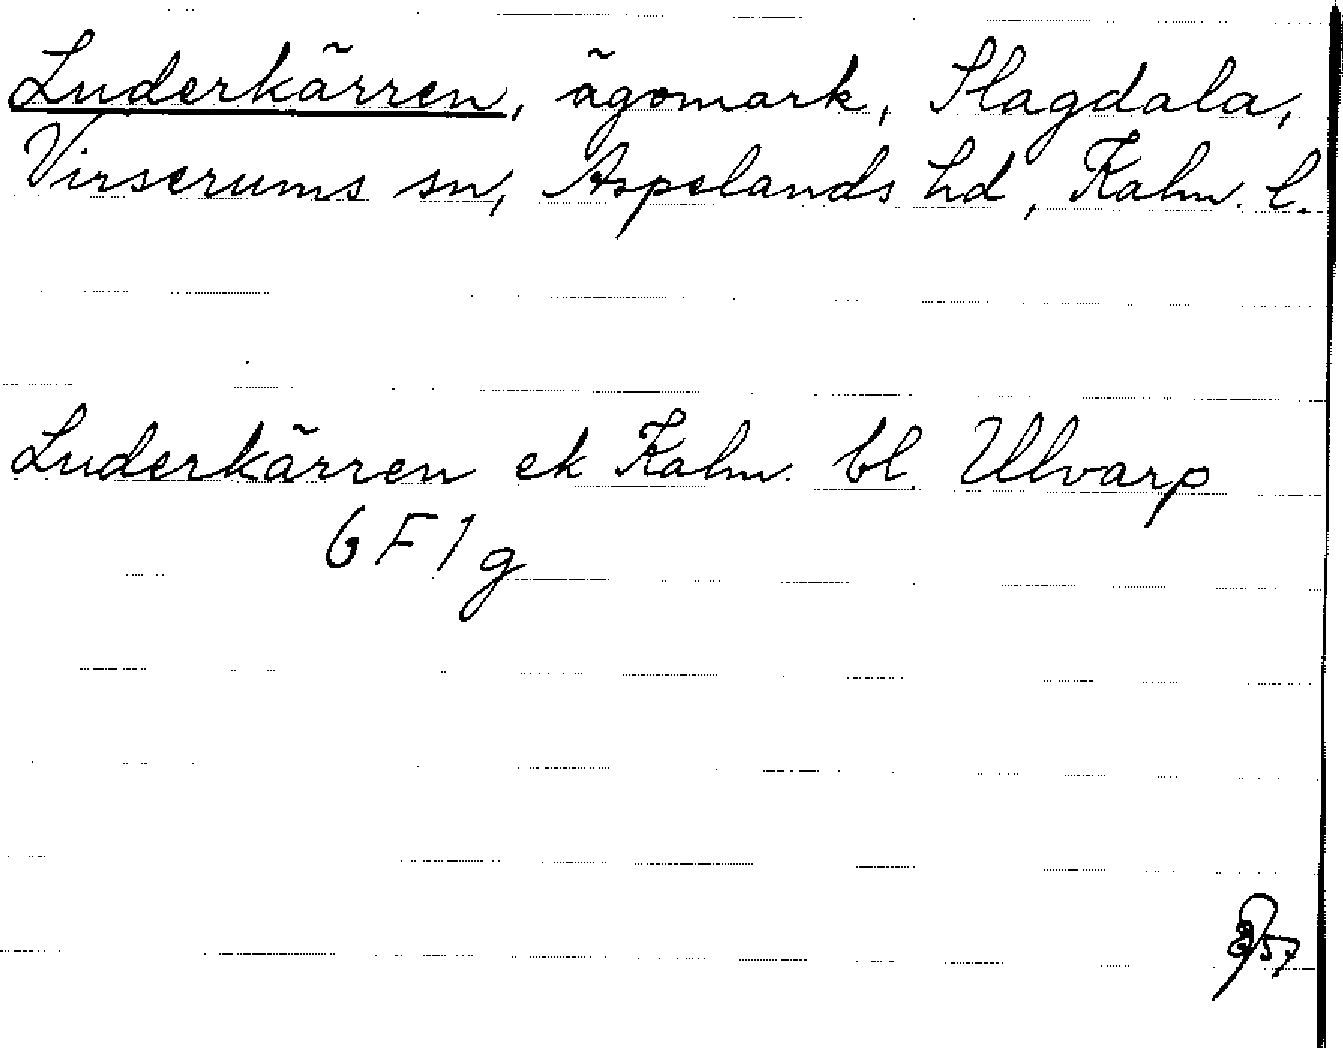 Luderkärren, ägomark, Slagdala,
Virserums sn, Aspelands hd, Kalm. l.
Luderkärren ek Kalm. bl. Ulvarp
6 F 1 g